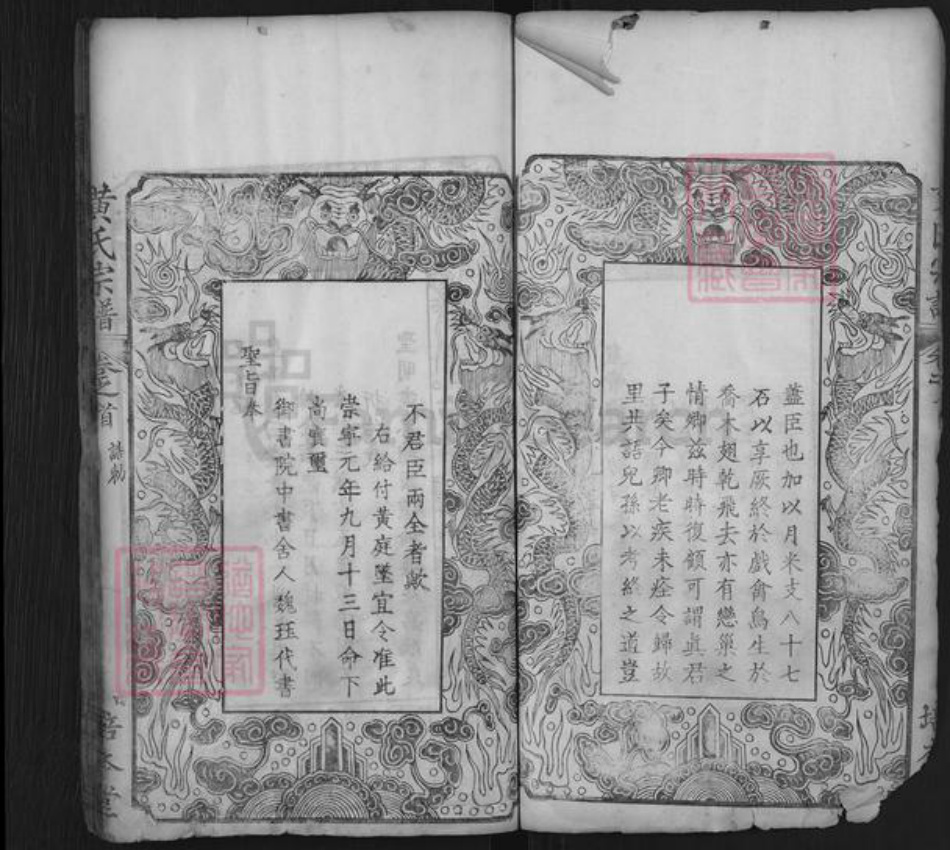 藎臣也加以月米支八十七
石以享厥終於戲禽鳥生於
喬木翅乾飛去亦有戀巢之
情卿兹時時復顧可謂眞君
子矣今卿老疾未痊令歸故
里共語兒孫以考終之道豈
不君臣兩全者歟
右給付黃庭堅宜令准此
崇寧元年九月十三日命下
尚寳璽
聖旨奉
御書院中書舍人魏珏代書
黃氏宗譜
卷之首
誥勅